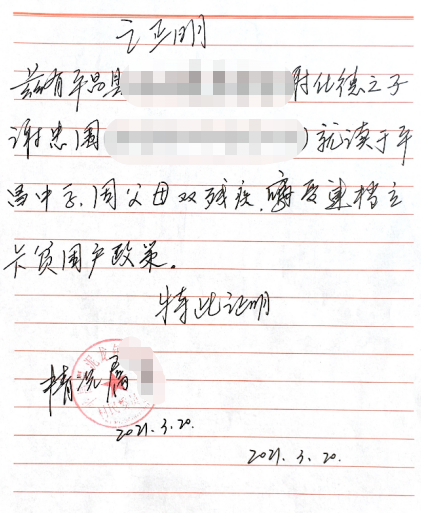 证明
兹有平昌县 谢化德之子
谢忠国( )就读于平
昌中学,因父母双残疾,享受建档立
卡贫困户政策。
特此证明
情况属
2021.3.20.
2021.3.20.